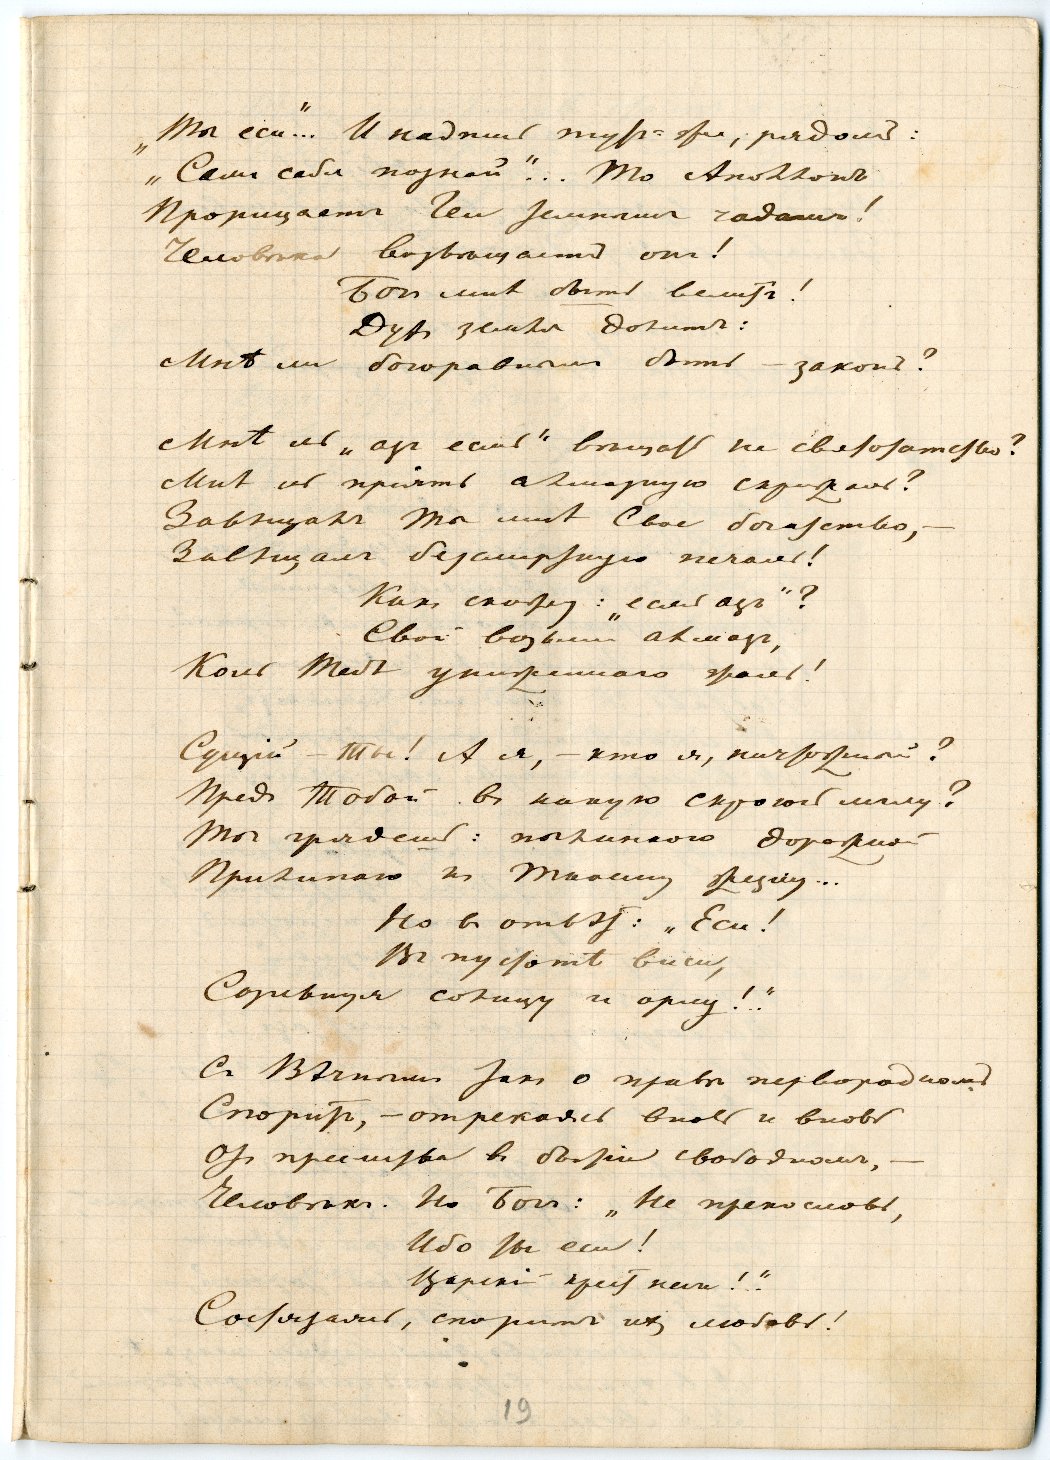 „Ты еси“... И надпись тутъ-же, рядомъ:
„Самъ себя познай“... То Аполлонъ
Прорицаетъ всѣмъ земнымъ чадамъ!
Человѣка возвѣщаетъ онъ!
Богъ мнѣ быть велитъ!
Духъ земля долитъ:
Мнѣ ли богоравнымъ быть – законъ?
Мнѣ ль „азъ есмь“ вѣщать не святотатство?
Мнѣ ль пріять алмазную скрижаль?
Завѣщалъ Ты мнѣ Свое богатство, –
Завѣщалъ безсмертную печаль!
Какъ скажу: „есмь азъ“?
Свой возьми алмазъ,
Коль Тебѣ униженнаго жаль!
Сущій – Ты! А я, – кто я, ничтожный?
Предъ Тобой въ какую скроюсь мглу?
Ты грядешь: пылинкою дорожной
Прилипаю къ Твоему жезлу...
Но въ отвѣтъ: „Еси!
Въ пустотѣ виси,
Соревнуя солнцу и орлу!“
Съ Вѣчнымъ такъ о правѣ первородномъ
Споритъ, – отрекаясь вновь и вновь
Отъ преимства въ бытіи свободномъ, –
Человѣкъ. Но Богъ: „Не прекословь,
Ибо ты еси!
Царскій крестъ неси!“
Состязаясь, споритъ ихъ любовь!
19